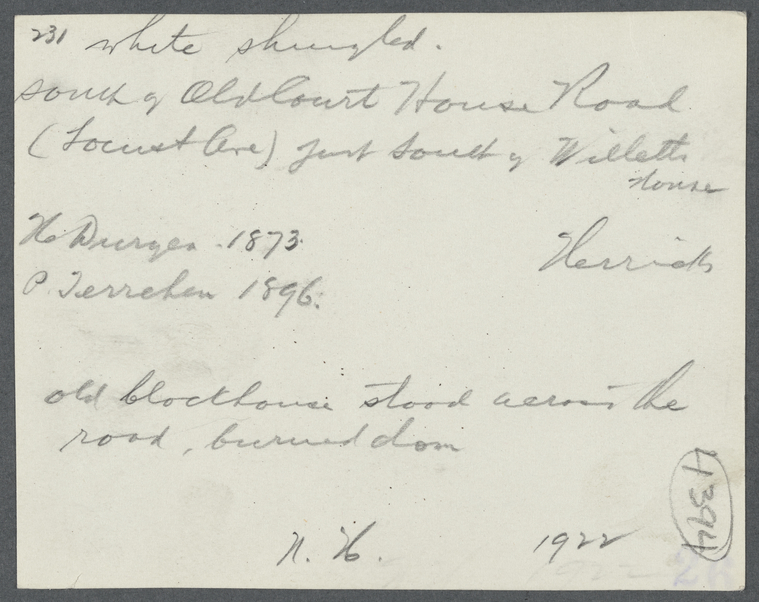 231 white shingled.
south of Old Court House Road
(Locust Ave) just south of Willetts
House
H. Duryea 1873.
Herricks
P. Terrehen 1896.
old blockhouse stood across the
road, burned down
N. H. 1922
4394